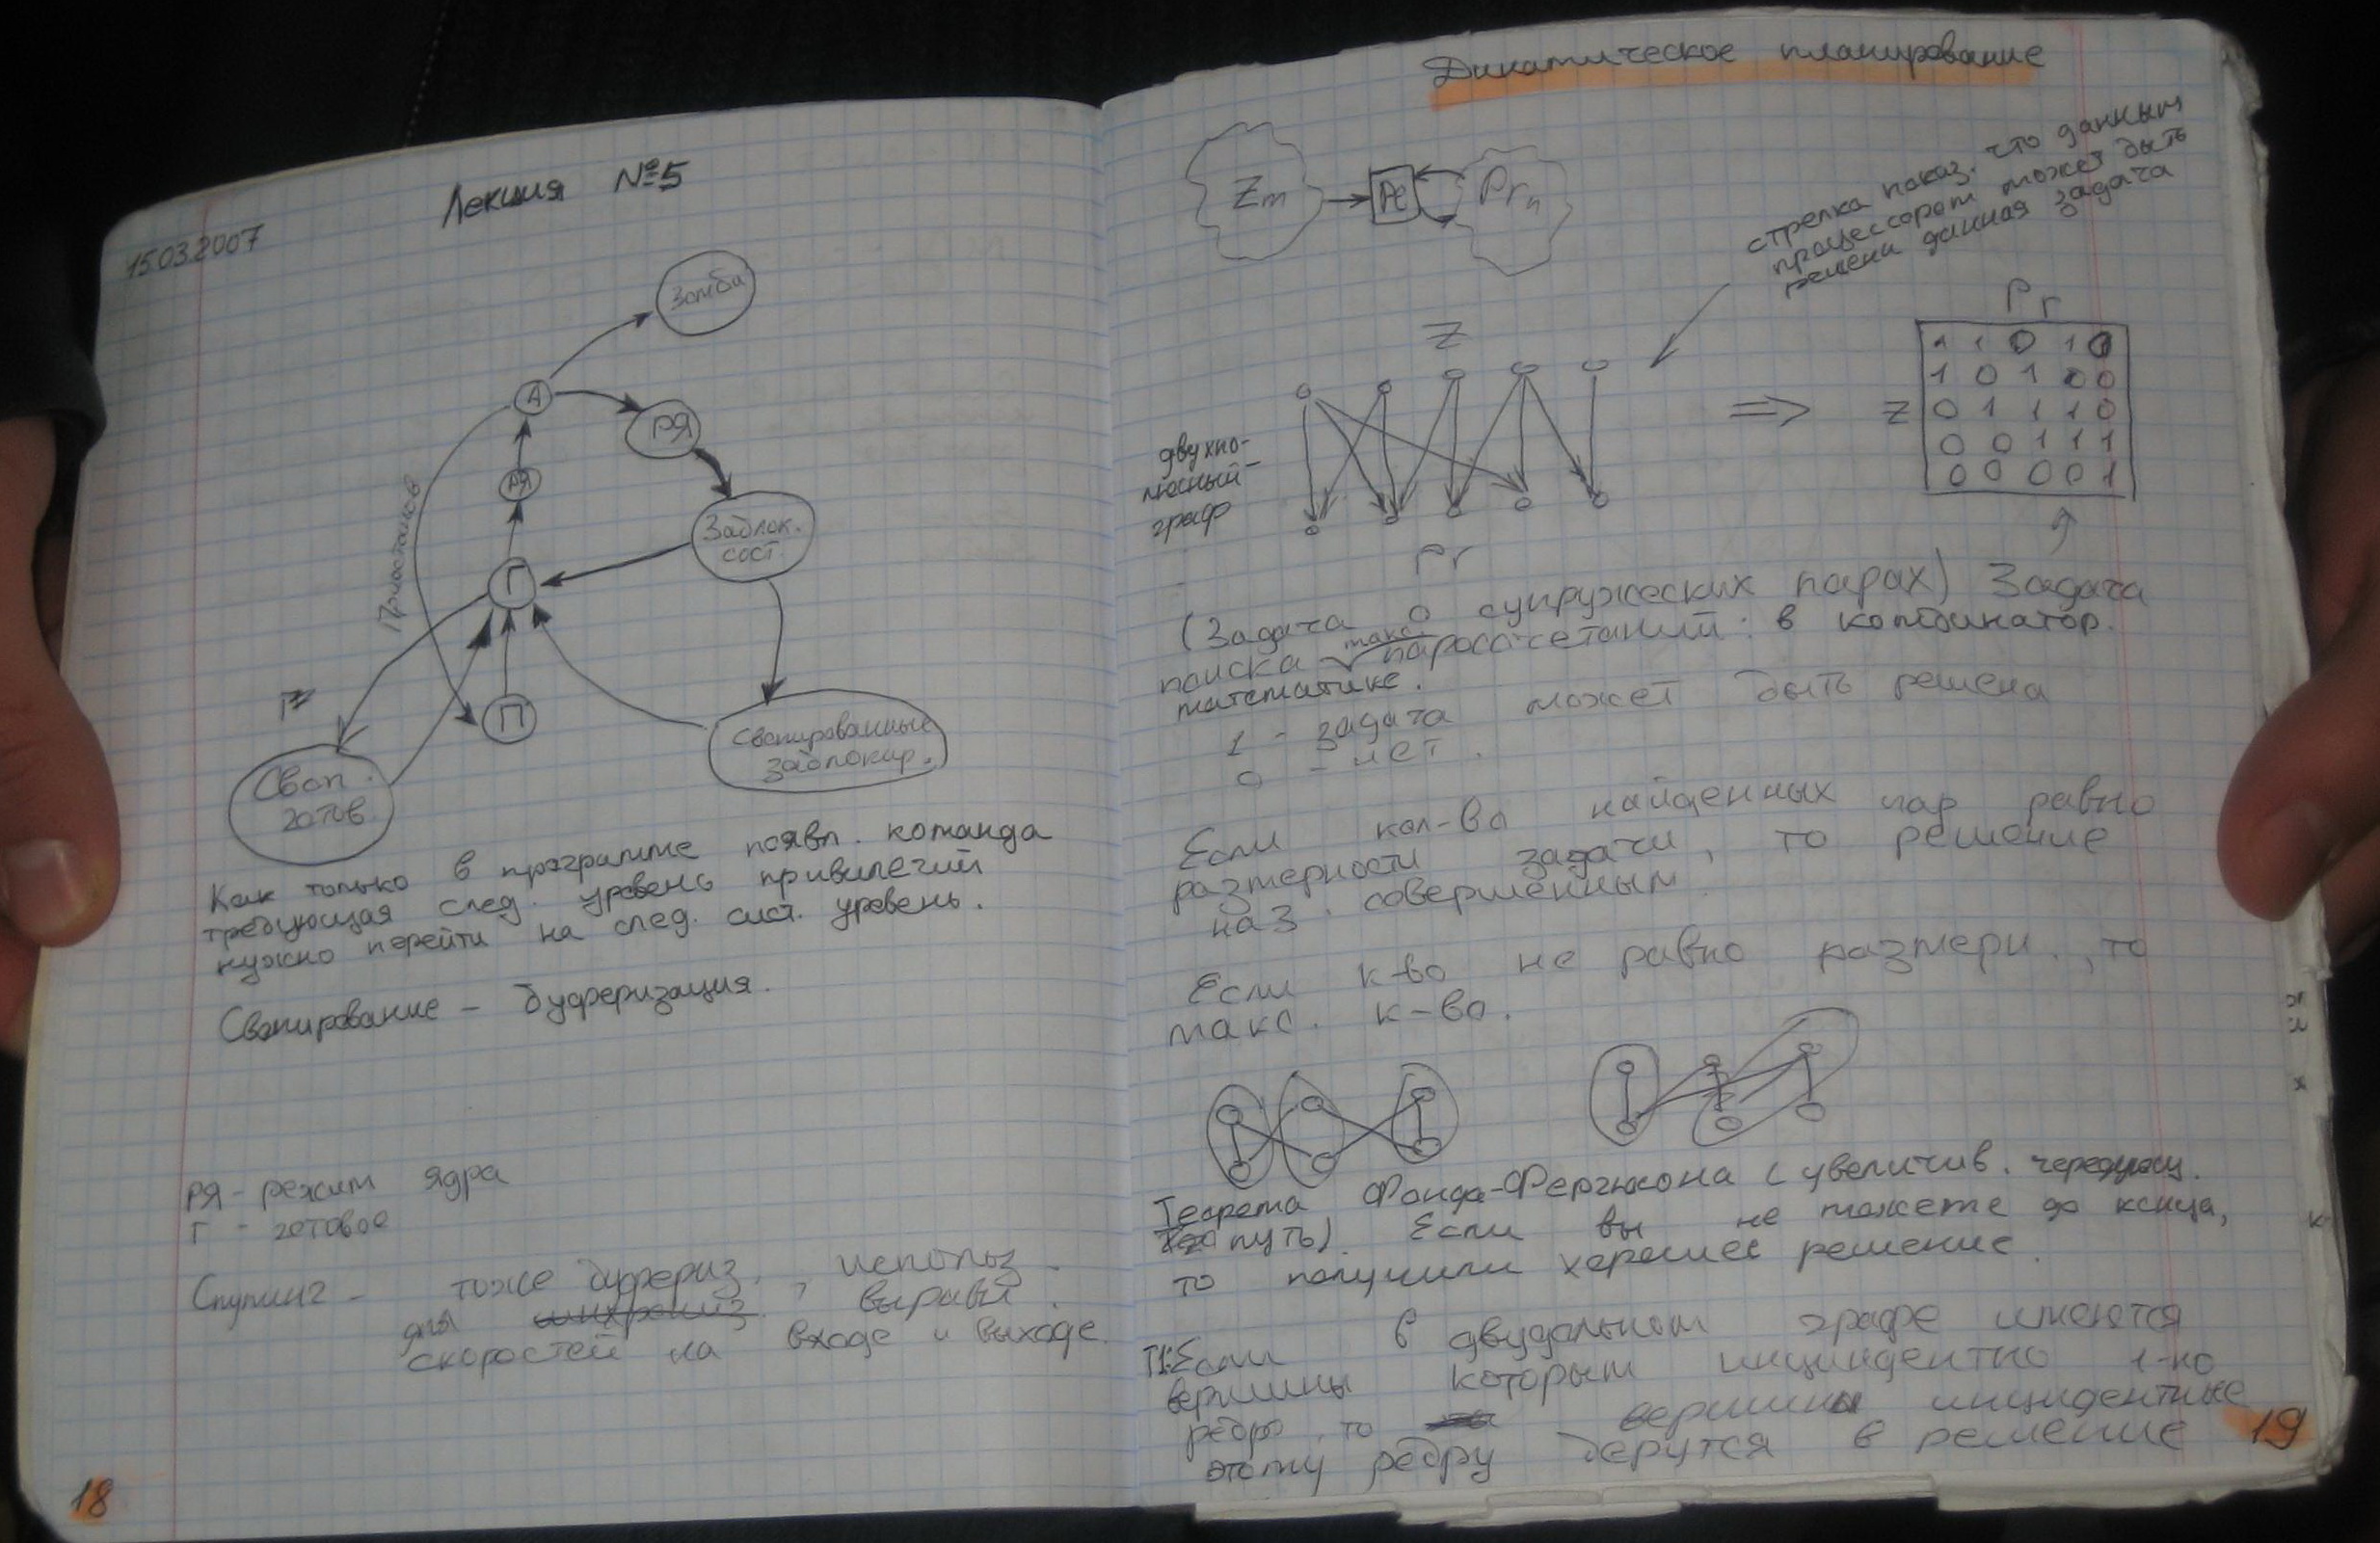 Лекция №5
15.03.2007
Зомби
А
РЯ
РЯ
Приостанов
Заблок.
сост.
Г
П
Своп.
готов.
Свопированные
заблокир.
Как только в программе появл. команда
требующая след. уровень привилегий
нужно перейти на след. сист. уровень.
Свопирование – буферизация.
РЯ – режим ядра
Г – готовое
Спулинг – тоже буфериз., использ.
для синхрониз. выравн.
скоростей на входе и выходе.
18
Динамическое планирование
Zm
Prn
стрелка показ. что данным
процессором может быть
решена данная задача
Z
Pr
двухпо-
люсный
граф
=>
Z
1 1 0 1 0
1 0 1 0 0
0 1 1 1 0
0 0 1 1 1
0 0 0 0 1
Pr
(Задача о супружеских парах) Задача
поиска макс паросочетаний: в комбинатор.
математике.
1 – задача может быть решена
0 – нет.
Если кол-во найденных пар равно
размерности задачи, то решение
наз. совершенным.
Если к-во не равно размерн., то
макс. к-во.
Теорема Фонда-Фергюсона (увеличив. чередующ.
путь). Если вы не можете до конца,
то получили хорошее решение.
T1: Если в двудольном графе имеются
вершины которым инциндентно 1-но
ребро, то вершины инцидентные
этому ребру берутся в решение
19